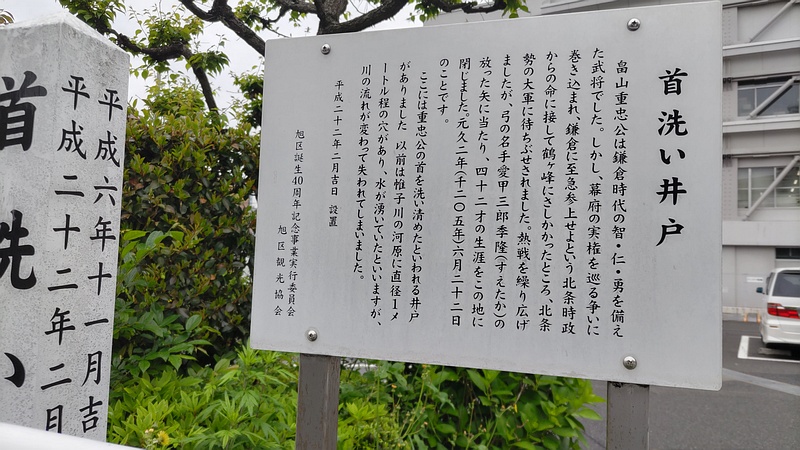 首洗い井戸
畠山重忠公は鎌倉時代の智・仁・勇を備え
た武将でした。しかし、幕府の実権を巡る争いに
巻き込まれ、鎌倉に至急参上せよという北条時政
からの命に接して鶴ヶ峰にさしかかったところ、北条
勢の大軍に待ちぶせされました。熱戦を繰り広げ
ましたが、弓の名手愛甲三郎季隆(すえたか)の
放った矢に当たり、四十二才の生涯をこの地に
閉じました。元久二年(千二〇五年)六月二十二日
のことです。
ここには重忠公の首を洗い清めたといわれる井戸
がありました 以前は帷子川の河原に直径一メ
ートル程の穴があり、水が湧いていたといいますが、
川の流れが変わって失われてしまいました。
平成二十二年二月吉日 設置
旭区誕生40周年記念事業実行委員会
旭区観光協会
平成六年十一月吉
平成二十二年二月
首洗い